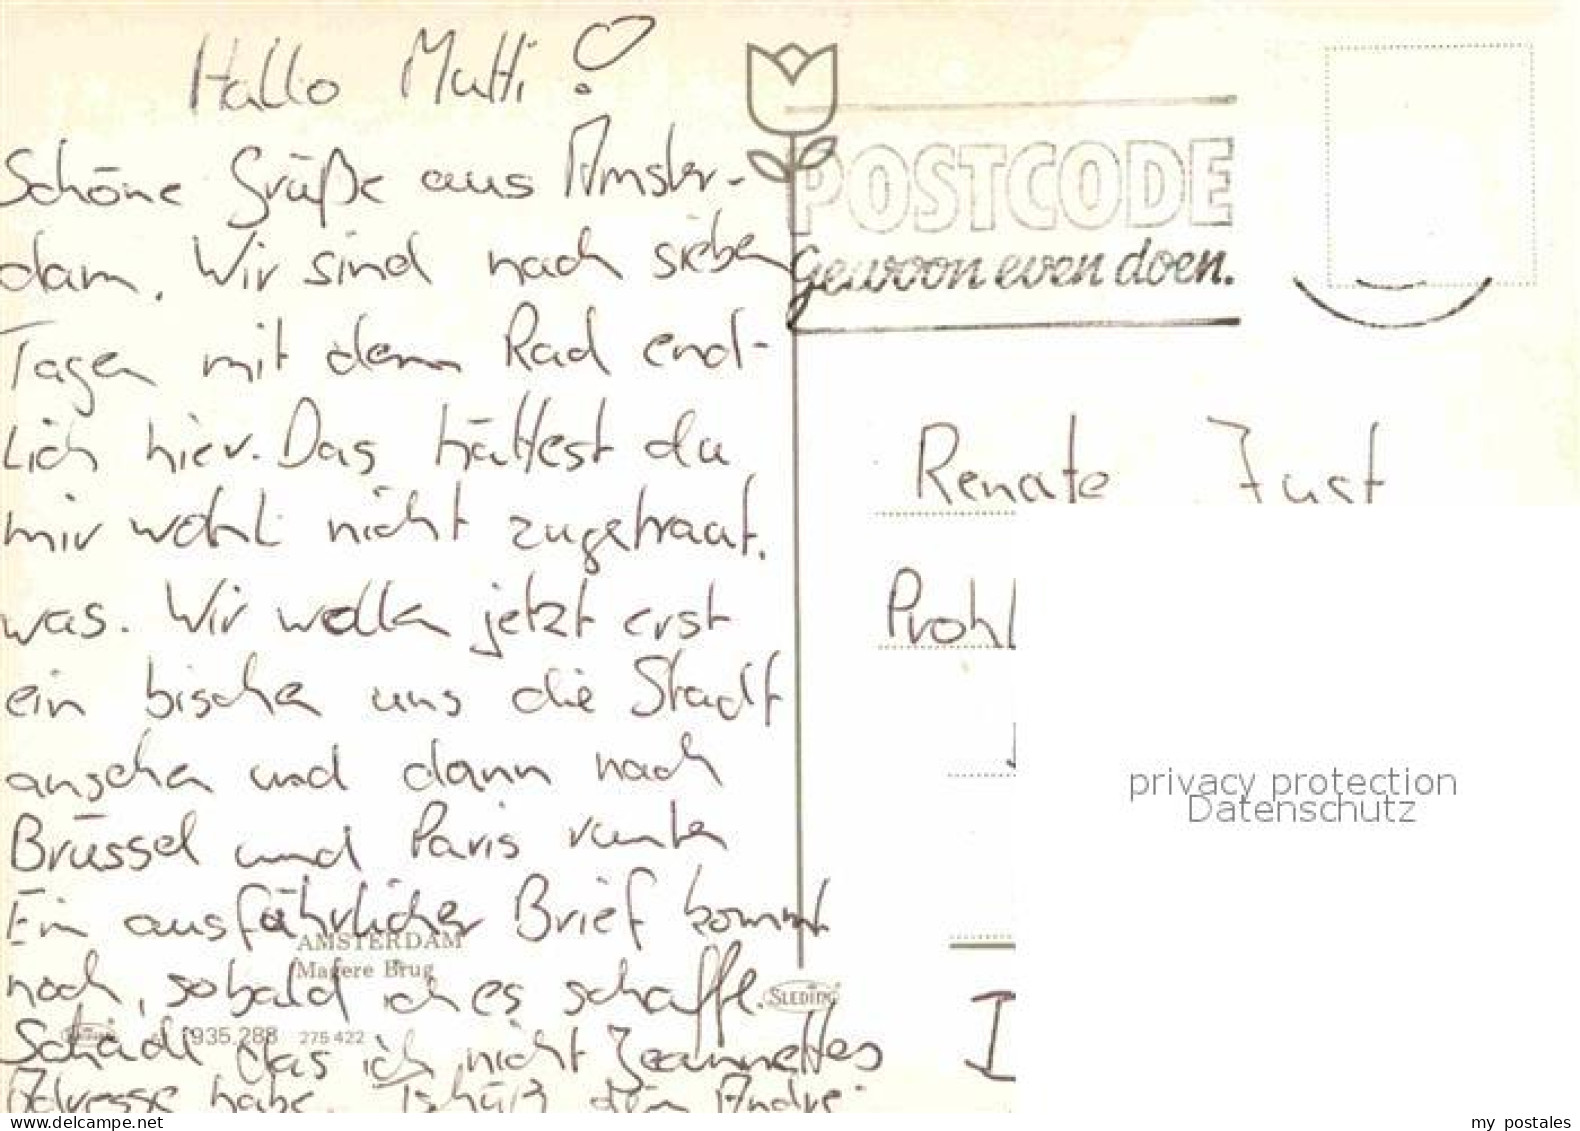 Hallo Mutti!
Schöne Grüße aus Amster-
dam. Wir sind nach sieben
Tagen mit dem Rad end-
lich hier. Das hättest du
mir wohl nicht zugetraat,
was. Wir wollen jetzt erst
ein bischen uns die Stadt
ansehen und dann nach
Brüssel und Paris runter
Ein ausführlicher Brief kommt
noch, sobald ich es schaffe.
Schade das ich nicht Jeannettes
Adresse habe. Tschüß dein André
AMSTERDAM
Magere Brug
935.288 275 422
SLEDING
POSTCODE
Gewoon even doen.
Renate Just
Prohl
privacy protection
Datenschutz
www.delcampe.net
my_postales